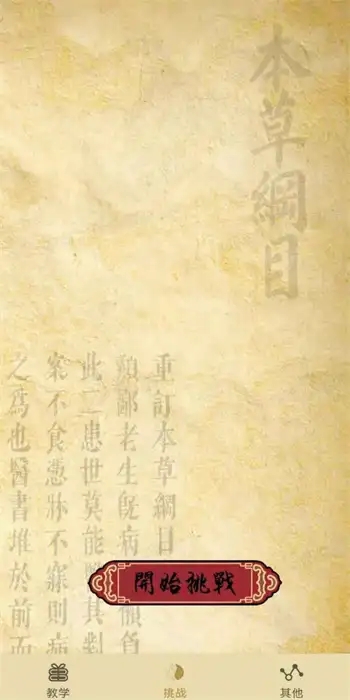 本草綱目
重訂本草綱目
類鄙老生旣病
負
此二患世莫能
其剞
案不食憑牀不寐則病
之爲也醫書堆於前而
開始挑戰
教学
挑战
其他